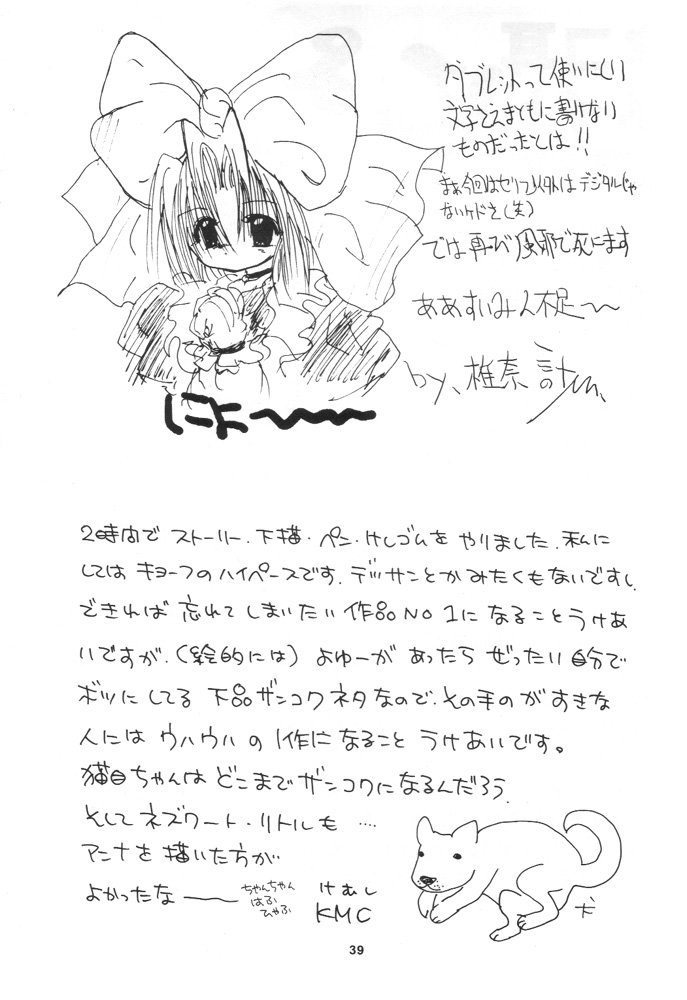 タブレットって使いにくい
文字さえまともに書けない
ものだったとは!!
まぁ今回はセリフ以外はデジタルじゃ
ないケドさ(笑)
では再び風邪で死にます
ああすいみん不足〜〜
by、椎奈
にょ〜〜〜
2時間で ストーリー、下描・ペン・けしゴムを やりました、私に
しては キョーフのハイペースです、デッサンとかみたくもないですし、
できれば 忘れて しまいたい 作品NO1になること うけあ
いですが、(絵的には) よゆーが あったら ぜったい自分で
ボツに してる 下品ザンコクネタなので、その手のがすきな
人には ウハウハ の 1作になること うけあいです。
猫目ちゃんは どこまでザンコクになるんだろう、
そして ネズワート・リトルも ‥‥
アンナを 描いた方が
よかったな 〜〜
ちゃんちゃん
はふ
ひゃふ
けむし
KMC
犬
39